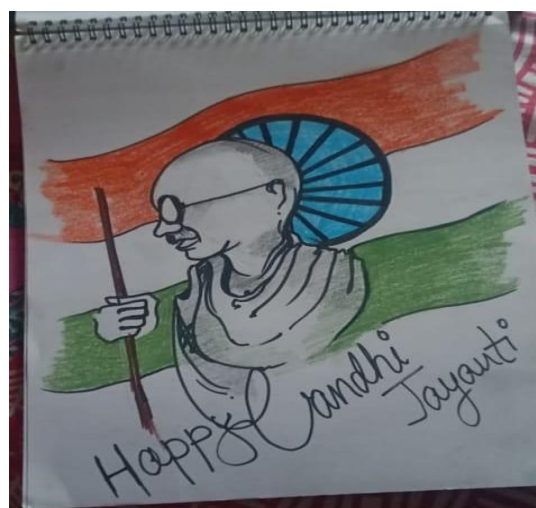 Happy Gandhi
Jayanti